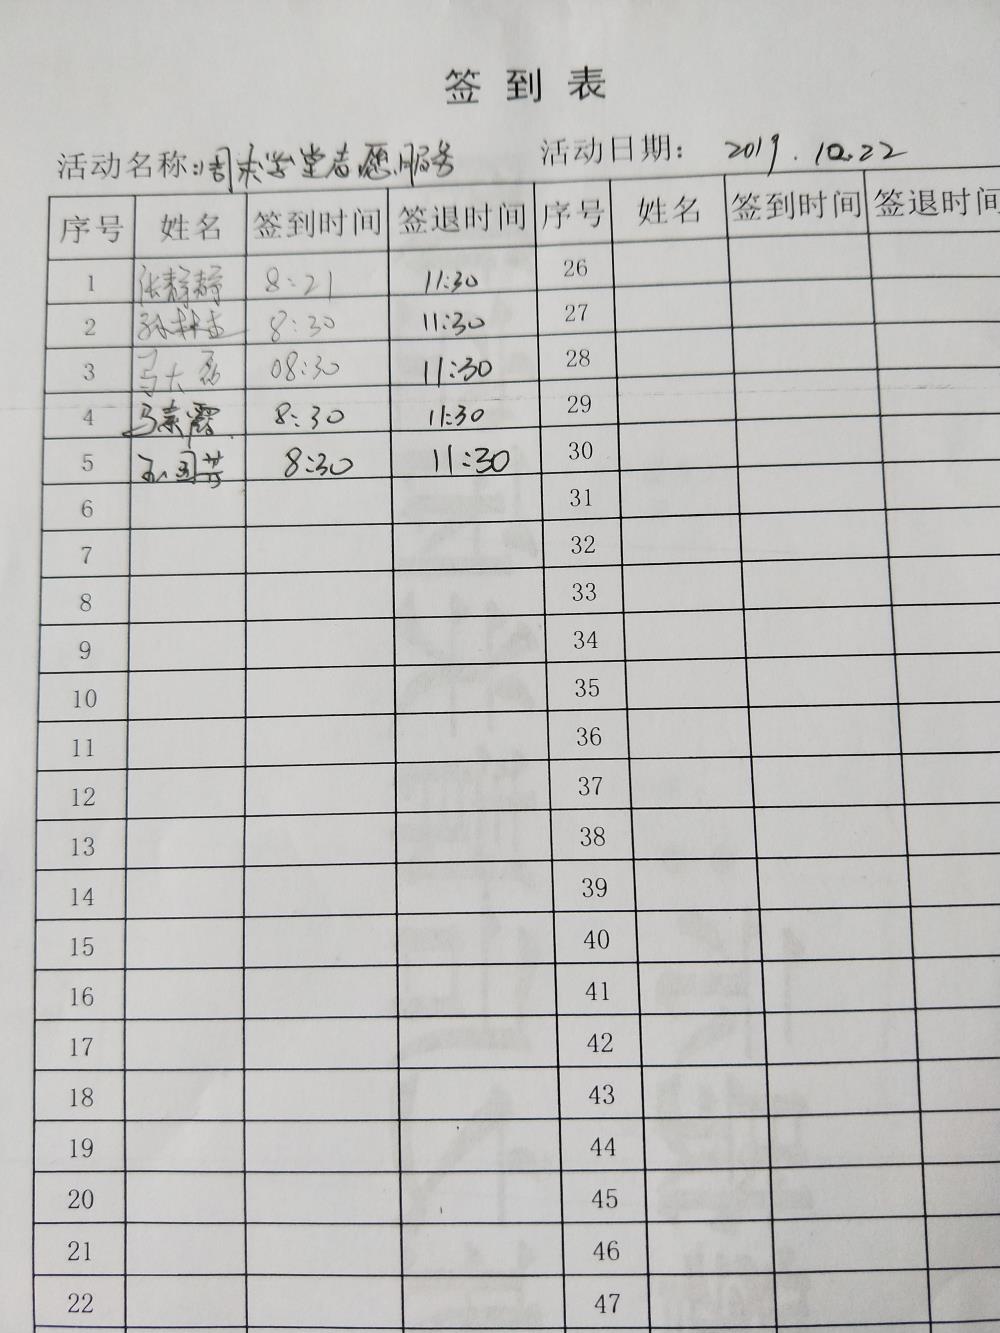 签到表
活动名称:周末学堂志愿服务 活动日期: 2019.10.22
序号 姓名 签到时间 签退时间 序号 姓名 签到时间 签退时间
1 张静静 8:21 11:30 26
2 8:30 11:30 27
3 马大磊 08:30 11:30 28
4 8:30 11:30 29
5 8:30 11:30 30
6 31
7 32
8 33
9 34
10 35
11 36
12 37
13 38
14 39
15 40
16 41
17 42
18 43
19 44
20 45
21 46
22 47